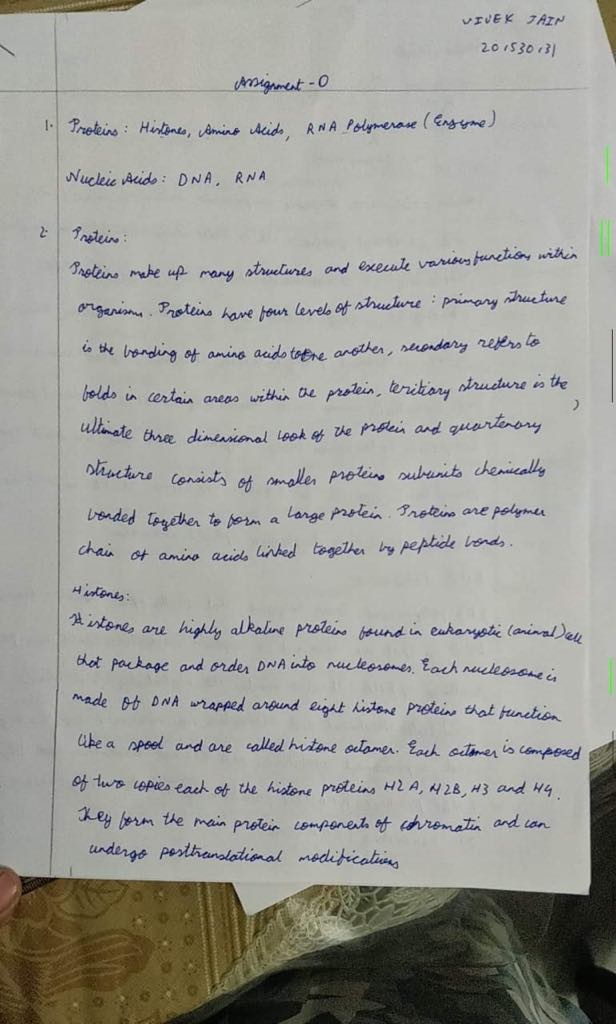 VIVEK JAIN
201530131
Assignment - 0
1. Proteins: Histones, Amino Acids, RNA Polymerase (Enzyme)
Nucleic Acids: DNA, RNA
2. Proteins:
Proteins make up many structures and execute various functions within
organism. Proteins have four levels of structure: primary structure
is the bonding of amino acids to one another, secondary refers to
folds in certain areas within the protein, teritiary structure is the
ultimate three dimensional look of the protein and quartenary
structure consists of smaller proteins subunits chemically
bonded together to form a large protein. Proteins are polymer
chain of amino acids linked together by peptide bonds.
Histones:
Histones are highly alkaline proteins found in eukaryotic (animal) cell
that package and order DNA into nucleosomes. Each nucleosome is
made of DNA wrapped around eight histone proteins that function
like a spool and are called histone octamer. Each octomer is composed
of two copies each of the histone proteins H2A, H2B, H3 and H4.
They form the main protein components of chromatin and can
undergo posttranslational modifications